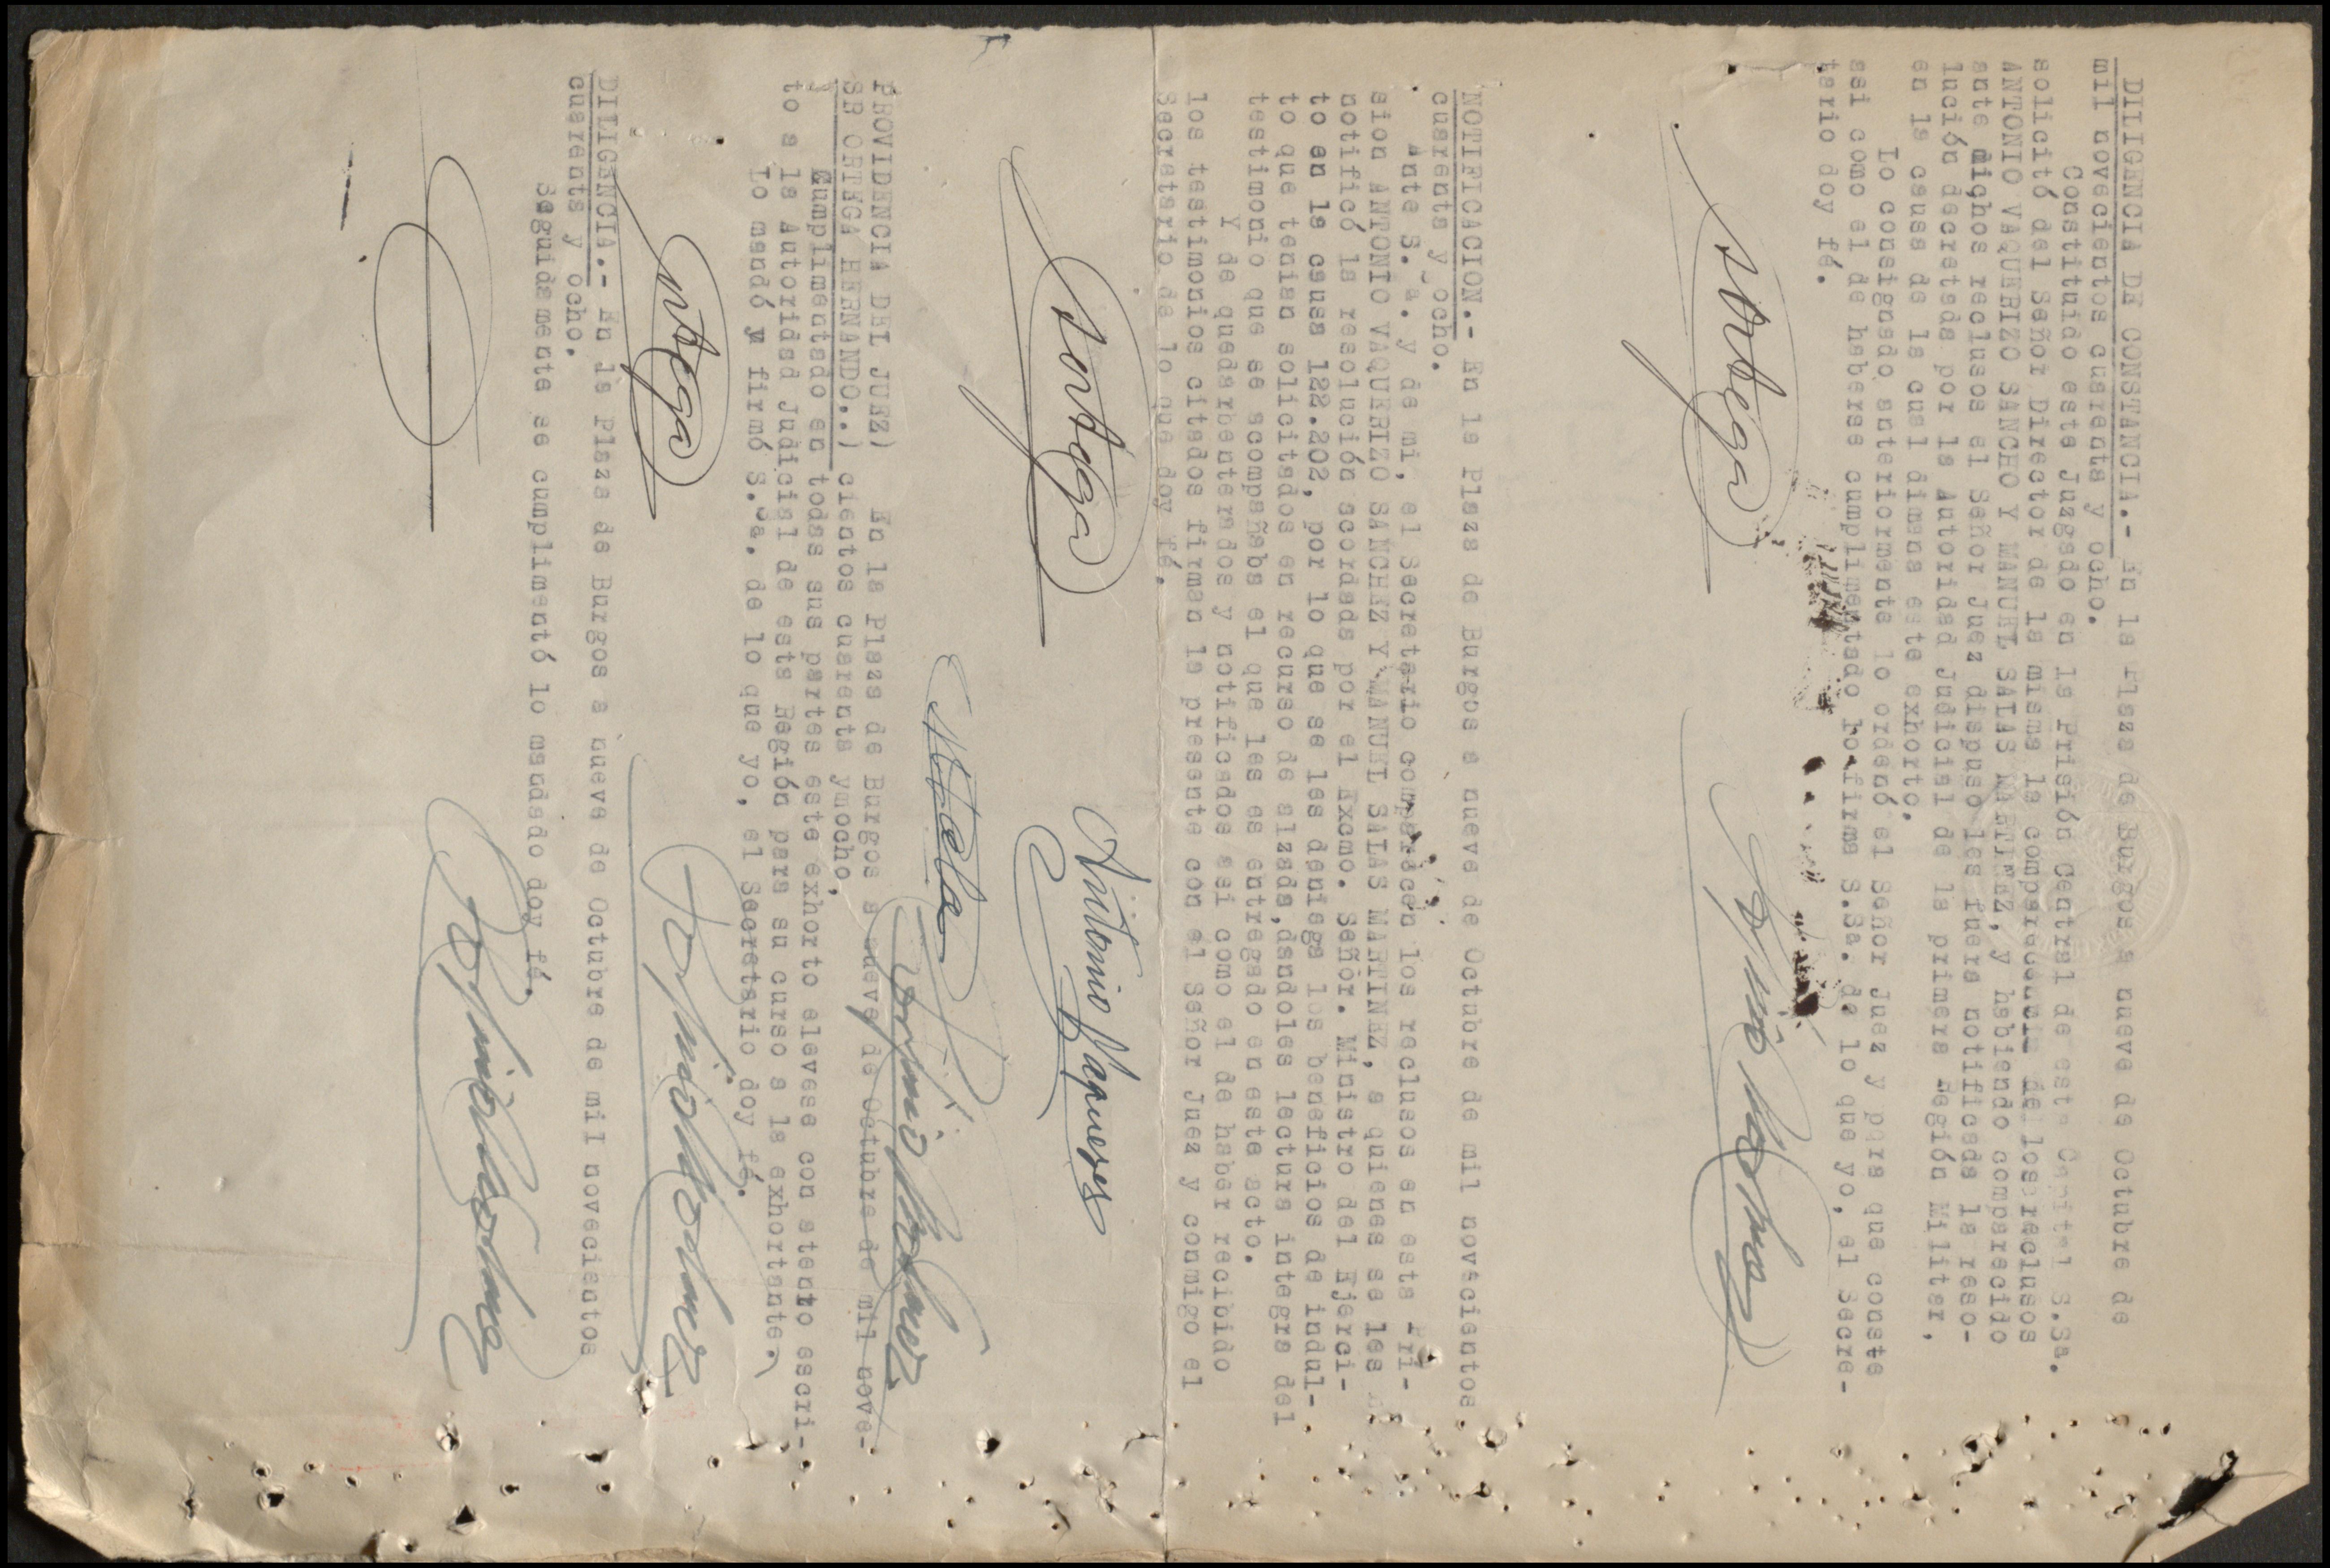 DILIGENCIA DE CONSTANCIA.- En la Plaza de Burgos a nueve de Octubre de
mil novecientos cuarenta y ocho.
Constituido este Juzgado en la Prisión Central de esta Capital S.Sa.
solicitó del Señor Director de la misma la comparecencia de los reclusos
ANTONIO VAQUERIZO SANCHO Y MANUEL SALAS MARTNEZ, y habiendo comparecido
ante dichos reclusos el Señor Juez dispuso les fuera notificada la reso-
lución decretada por la Autoridad Judicial de la primera Región Militar,
en la causa de la cual dimana este exhorto.
Lo consignado anteriormente lo ordenó el Señor Juez y para que conste
asi como el de haberse cumplimentado lo firma S.Sa. de lo que yo, el Secre-
tario doy fé.
Ortega
NOTIFICACION.- En la Plaza de Burgos a nueve de Octubre de mil novecientos
cuarenta y ocho.
Ante S.Sa. y de mi, el Secretario comparecen los reclusos en esta Pri-
sion ANTONIO VAQUERIZO SANCHEZ Y MANUEL SALAS MARTINEZ, a quienes se les
notificó la resolución acordada por el Excmo. Señor. Ministro del Ejerci-
to en la causa 122.202, por lo que se les deniega los beneficios de indul-
to que tenian solicitados en recurso de alzada,dandoles lectura integra del
testimonio que se acompañaba el que les es entregado en este acto.
Y de quedarbenterados y notificados asi como el de haber recibido
los testimonios citados firman la presente con el Señor Juez y conmigo el
Secretario de lo que doy fé.
Ortega
Antonio Vaqueros
PROVIDENCIA DEL JUEZ) En la Plaza de Burgos a nueve de Octubre de mil nove-
SR ORTEGA HERNANDO..) cientos cuarenta ymocho,
Cumplimentado en todas sus partes este exhorto elevese con atento escri-
to a la Autoridad Judicial de esta Región para su curso a la exhortante.
Lo mandó y firmó S.Sa. de lo que yo, el Secretario doy fé.
Ortega
DILIGENCIA.- En la Plaza de Burgos a nueve de Octubre de mil novecientos
cuarenta y ocho.
Seguidamente se cumplimentó lo mandado doy fé.